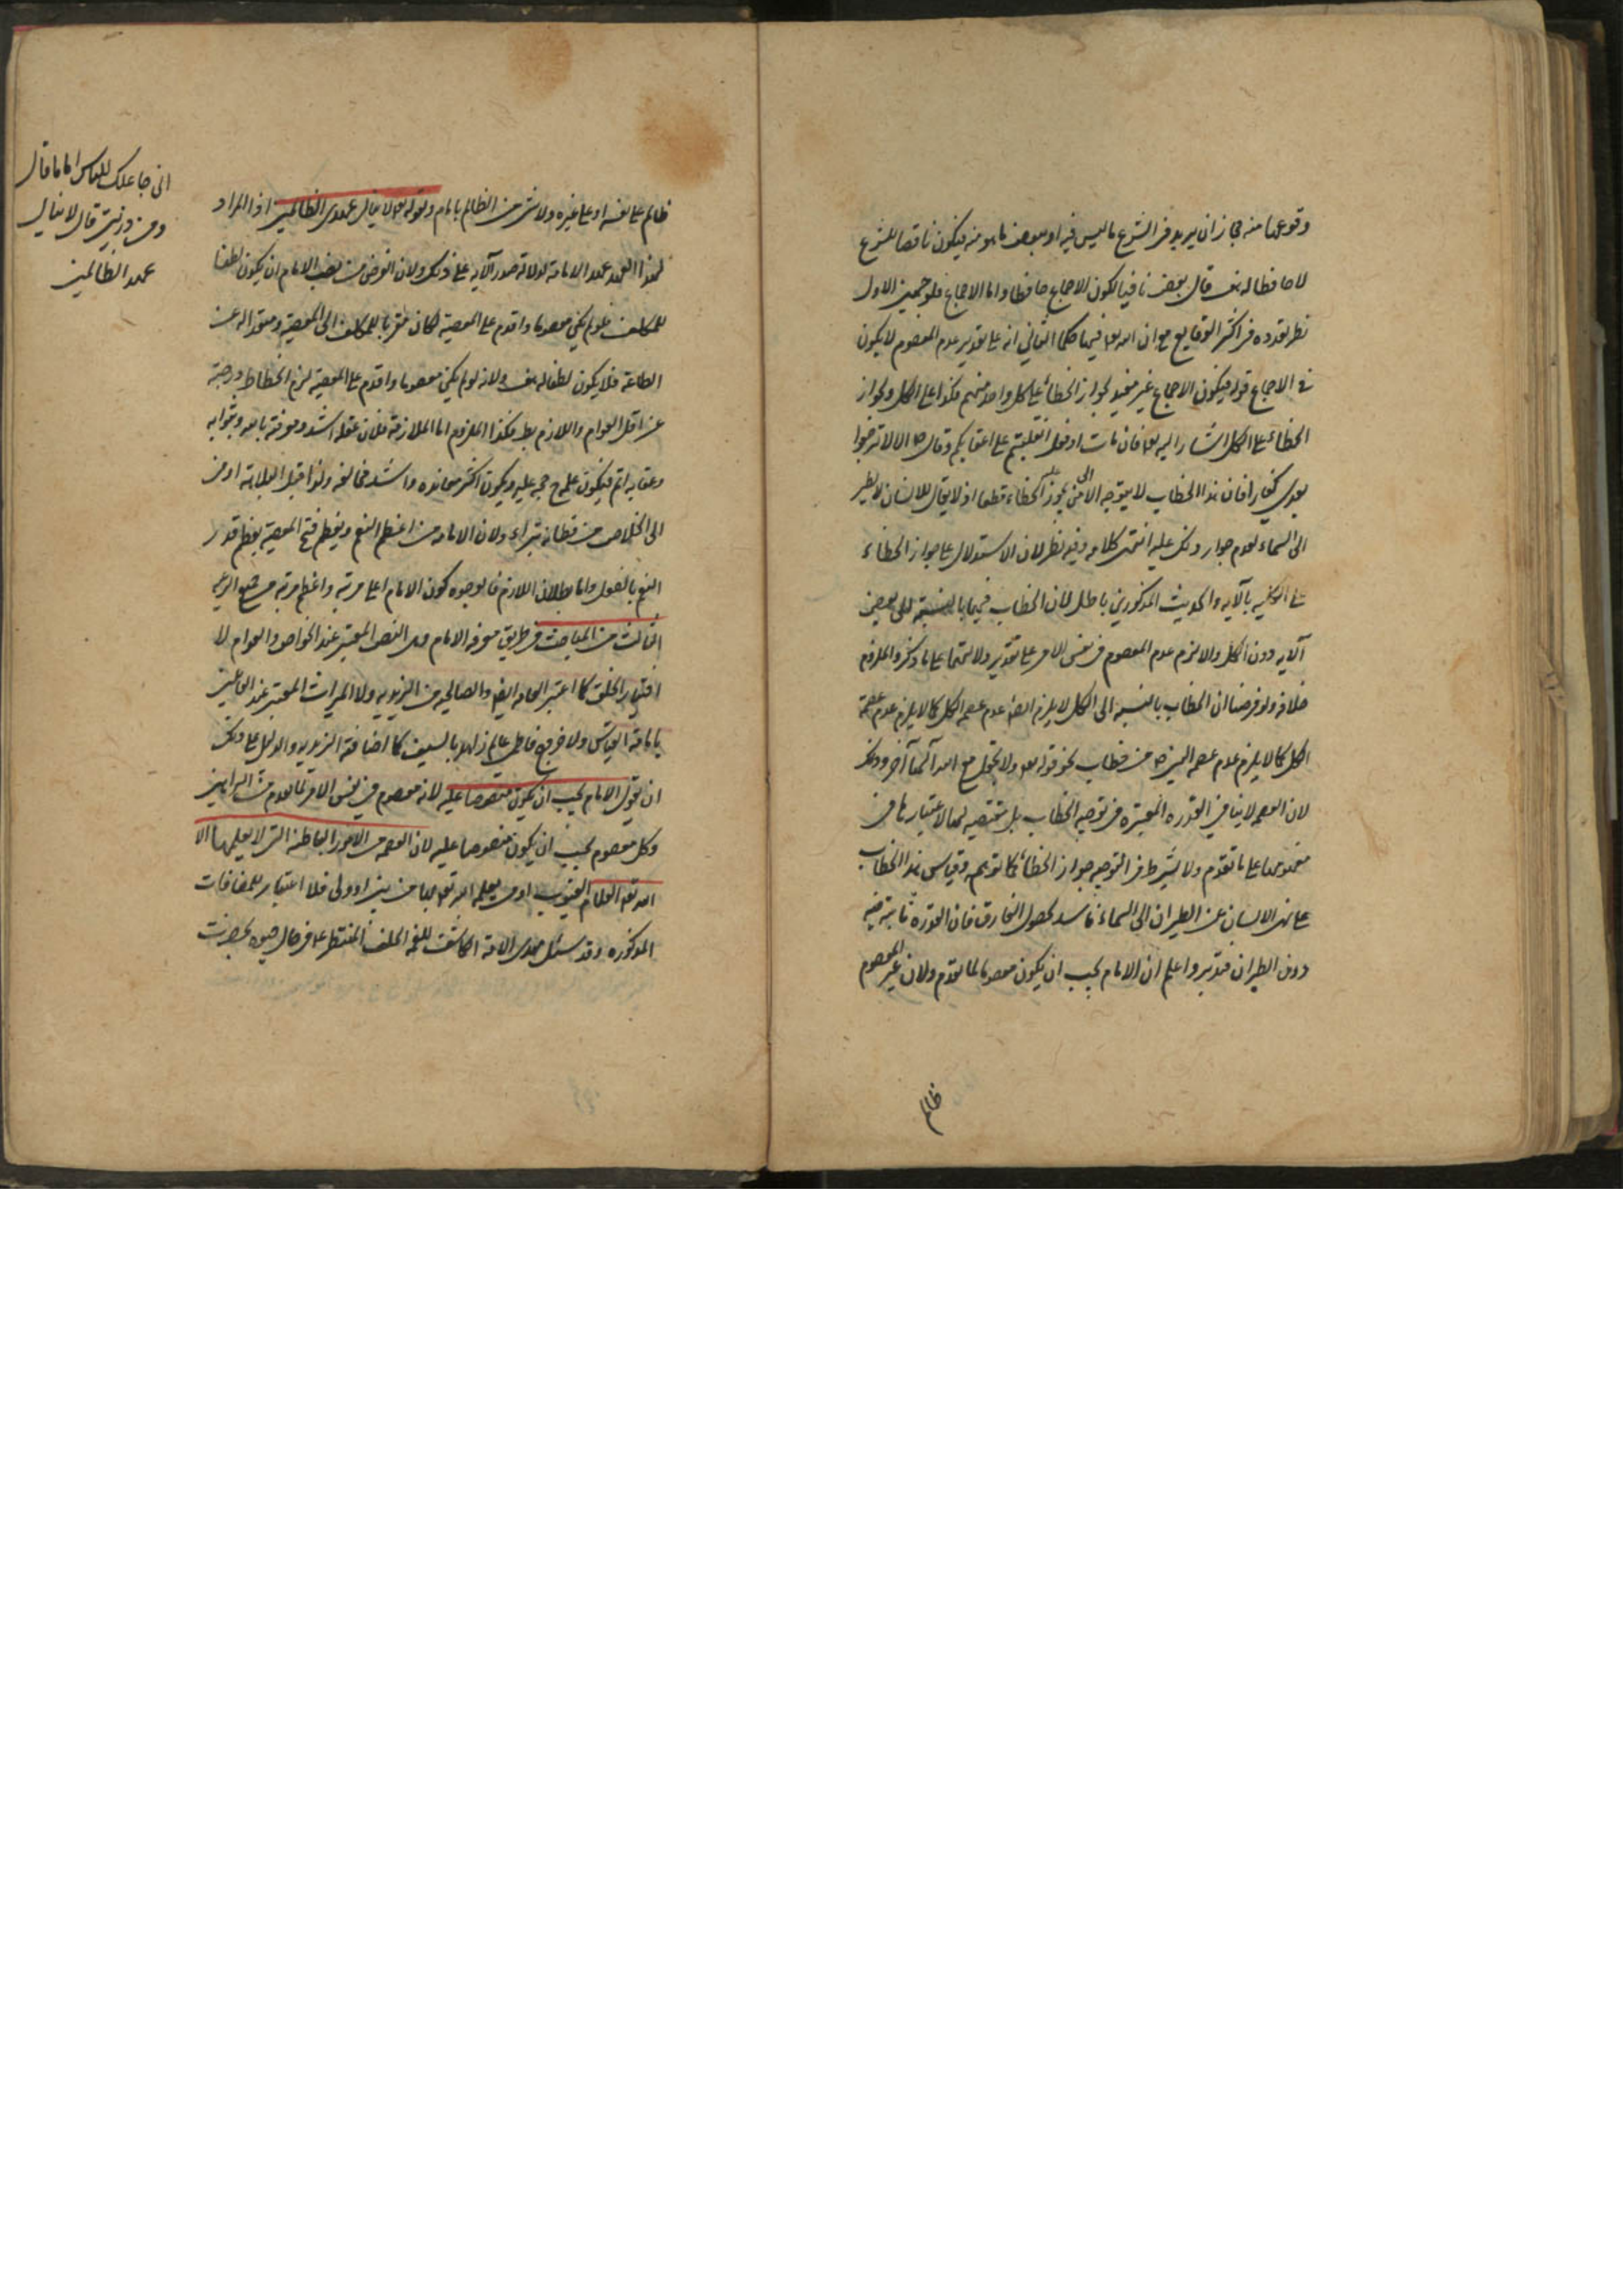 وقوعها منه فجاز ان يزيد فى الشرع ما ليس فيه او ببعض ما هو منه فيكون ناقصا للشرع
لا حافظا له هف قال بعض نافيا لكون الاجماع حافظا واما الاجماع فلوجهين الاول
نظر تعدده فى اكثر الوقايع مع ان الله تعه فيها حكما الثانى انه على تقدير عدم المعصوم لا يكون
فى الاجماع قوله فيكون الاجماع غير مفيد لجواز الخطأ على كل واحد منهم فكذا على الكل ولجواز
الخطاء على الكل اشار اليه تعه افان مات او قتل انقلبتم على اعقابكم وقال ص الا لا ترجعوا
بعدى كفارا فان هذا الخطاب لا يتوجه الا الى من يجوز عليه الخطاء قطعا اذ لا يقال للانسان لا تطر
الى السماء لعدم جواز ذلك عليه انتهى كلامه وفيه نظر لان الاستدلال على جواز الخطاء
على الكل بالآيه والحديث المذكورين باطل لان الخطاب فيها بالنسبة الى بعض
الآيه دون الكل والا لزم عدم المعصوم فى نفس الامر على تقدير دلالتهما على ما ذكر والملزوم
خلافه ولو فرضنا ان الخطاب بالنسبة الى الكل لا يلزم ايضا عدم عصمه الكل كما لا يلزم عدم عصمة
الكل كما لا يلزم عدم عصمه النبى ص من خطاب نحو قوله تعه ولا تجعل مع الله آلها آخر وذلك
لان العصمه لا ينافى القدره المعتبره فى توجيه الخطاب بل مقتضيه لها لاعتبارها فى
مفهومها على ما تقدم ولا يشترط فى التوجيه جواز الخطأ كما توهم وقياس هذا الخطاب
على نهى الانسان عن الطيران الى السماء فاسد لحصول الفارق فان القدره ثابته فيه
دون الطيران فتدبر واعلم ان الامام يجب ان يكون معصوما لما تقدم ولان غير المعصوم
ظالم
ظالم على نفسه او على غيره ولا شى من الظالم بامام ولقوله تعه لا ينال عهدى الظالمين اذا المراد
بهذا العهد عهد الامامة لدلالة صدر الآيه على ذلك ولان الغرض من نصب الامام ان يكون لطفا
للمكلف فلو لم يكن معصوما واقدم على المعصية لكان مقربا للمكلف الى المعصية ومبعدا له عن
الطاعة فلا يكون لطفا له هف ولانه لو لم يكن معصوما واقدم على المعصية لزم انحطاط درجته
عن اقل العوام واللازم بط فكذا الملزوم اما الملازمة فلان عقله اشد ومعرفته بالله وبثوابه
وعقابه اتم فيكون علمه حجه عليه ويكون اكثر معانده واشد مخالفه
الى الخلاص من ولان الامامه من اعظم النعم ويعظم قبح المعصية بعظم قدر
النعم بالفعل واما بطلان اللازم فالوجوه كون الامام اعلى مرتبه واعظم مرتبه من جميع الرعية
الثالث من المباحث فى طريق معرفه الامام وهى النص المعتبر عند الخواص والعوام لا
اختيار الخلق كما اعتبر العامه ايضا والصالحيه من الزيديه ولا الميراث المعتبر عند القائلين
بامامة العباس ولا خروج فاطمى عالم زاهد بالسيف كما اضافة الزيديه والدليل على ذلك
ان تقول الامام يجب ان يكون منصوصا عليه لانه معصوم فى نفس الامر لما تقدم من البراهين
وكل معصوم يجب ان يكون منصوصا عليه لان العصمه من الامور الباطنه التى لا يعلمها الا
الله تعه العلام الغيوب او من يعلمه الله تعه بها من نبى او ولى فلا اعتبار للمضافات
المذكوره وقد سئل مهدى الامة الكاشف للغمه الخلف المنتظر عه فى حال صبوه بحضرت
انى جاعلك للناس اماما قال
ومن ذريتى قال لا ينال
عهد الظالمين